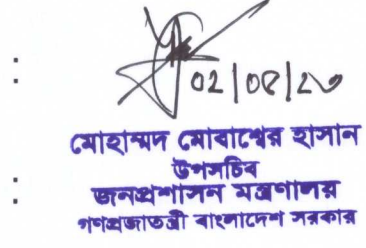 ০২/০৫/২৩
মোহাম্মদ মোবাশ্বের হাসান
উপসচিব
জনপ্রশাসন মন্ত্রণালয়
গণপ্রজাতন্ত্রী বাংলাদেশ সরকার